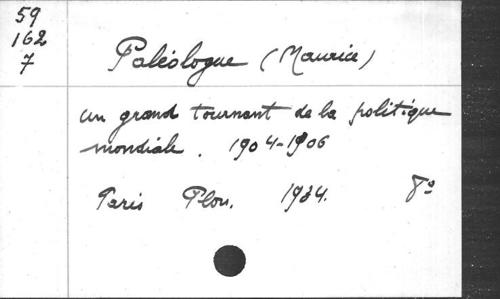 59
162
7
Paléologue (Maurice)
un grand tournant de la politique
mondiale. 1904-1906
Paris Plon. 1934. 8º